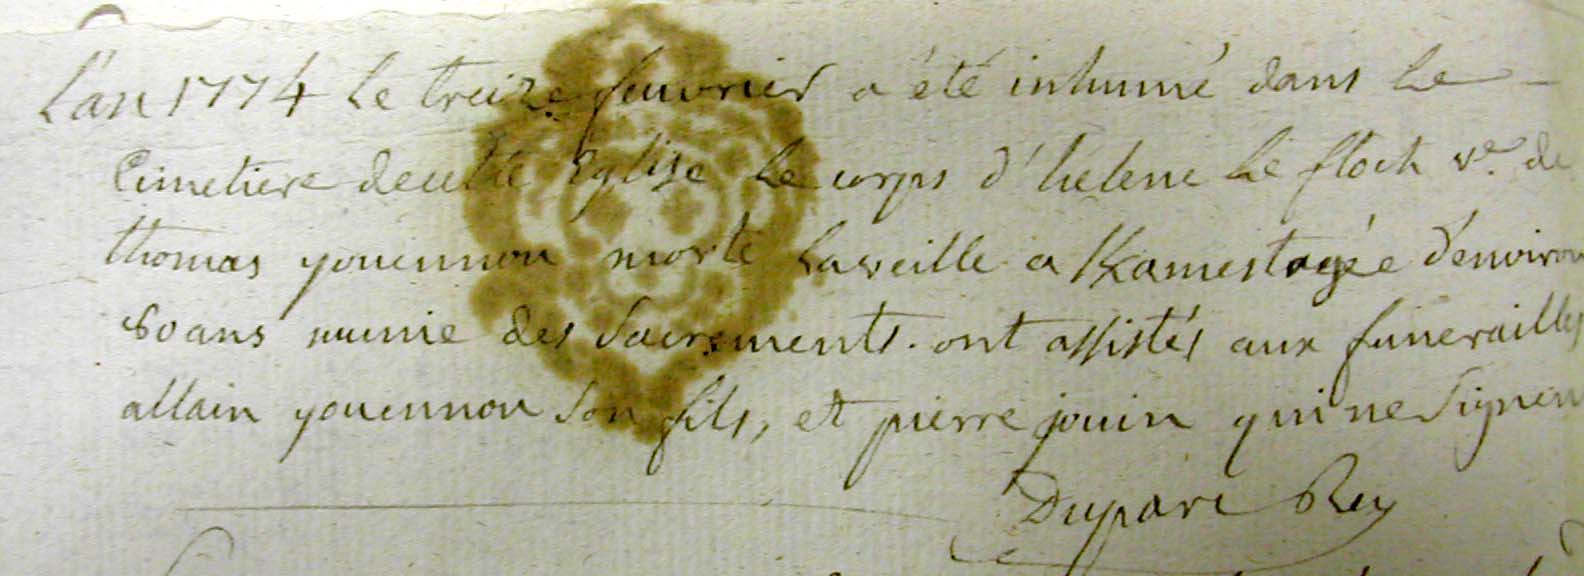 L'an 1774 le treize fevrier a été inhumé dans le
Cimetiere de cette Eglise le corps d'helene le floch ve. de
thomas youennou morte la veille a Kamestagée d'environ
80 ans munie des Sacrements. ont assistés aux funerailles
allain youennou son fils, et pierre jouin qui ne signent
Duparc Rey